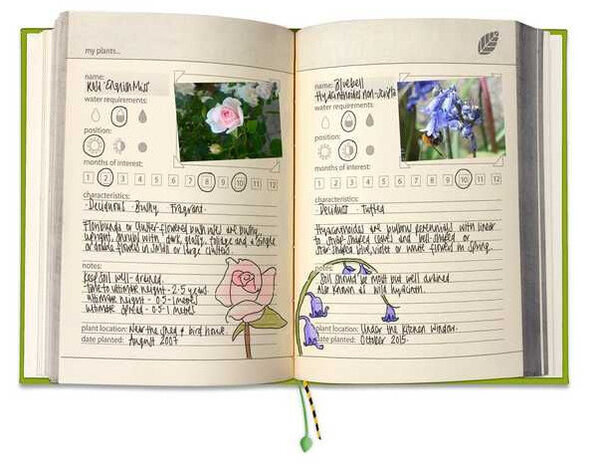 my plants...
name:
Rosa - English Miss
water requirements:
position:
months of interest:
1 2 3 4 5 6 7 8 9 10 11 12
characteristics:
- Deciduous - Bushy - Fragrant
Floribunda or cluster-flowered bush roses are bushy,
upright, shrubs with dark, glossy foliage and
flowers in small or large clusters
notes:
Keep soil well-drained.
Time to ultimate height - 2-5 years
ultimate height - 0.5-1 metres
ultimate spread - 0.5-1 metres
plant location: Near the shed & bird house.
date planted: August 2007
name: Bluebell
Hyacinthoides non-scripta
water requirements:
position:
months of interest:
1 2 3 4 5 6 7 8 9 10 11 12
characteristics:
- Tufted
Hyacinthoides are bulbous perennials with linear
to strap-shaped leaves and bell-shaped or
star-shaped blue, violet or white flowers in spring.
notes:
Soil should be moist but well drained
Also known as wild hyacinth.
plant location: Under the kitchen window.
date planted: October 2015.